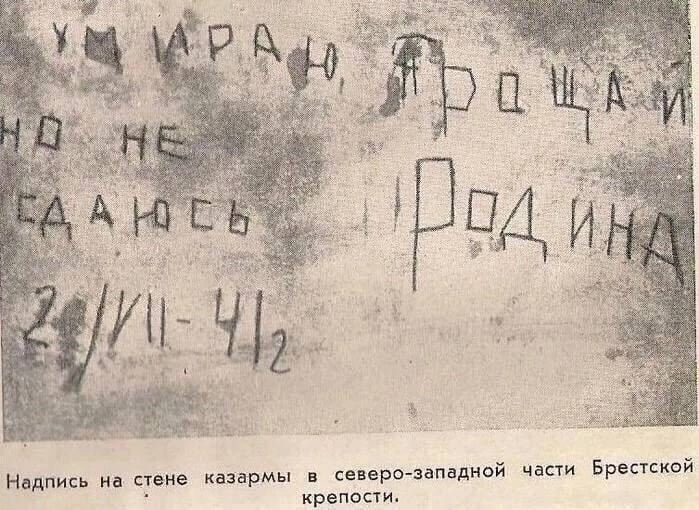 УМИРАЮ,
НО НЕ
СДАЮСЬ
20/VII-41г
ПРОЩАЙ
РОДИНА
Надпись на стене казармы в северо-западной части Брестской
крепости.